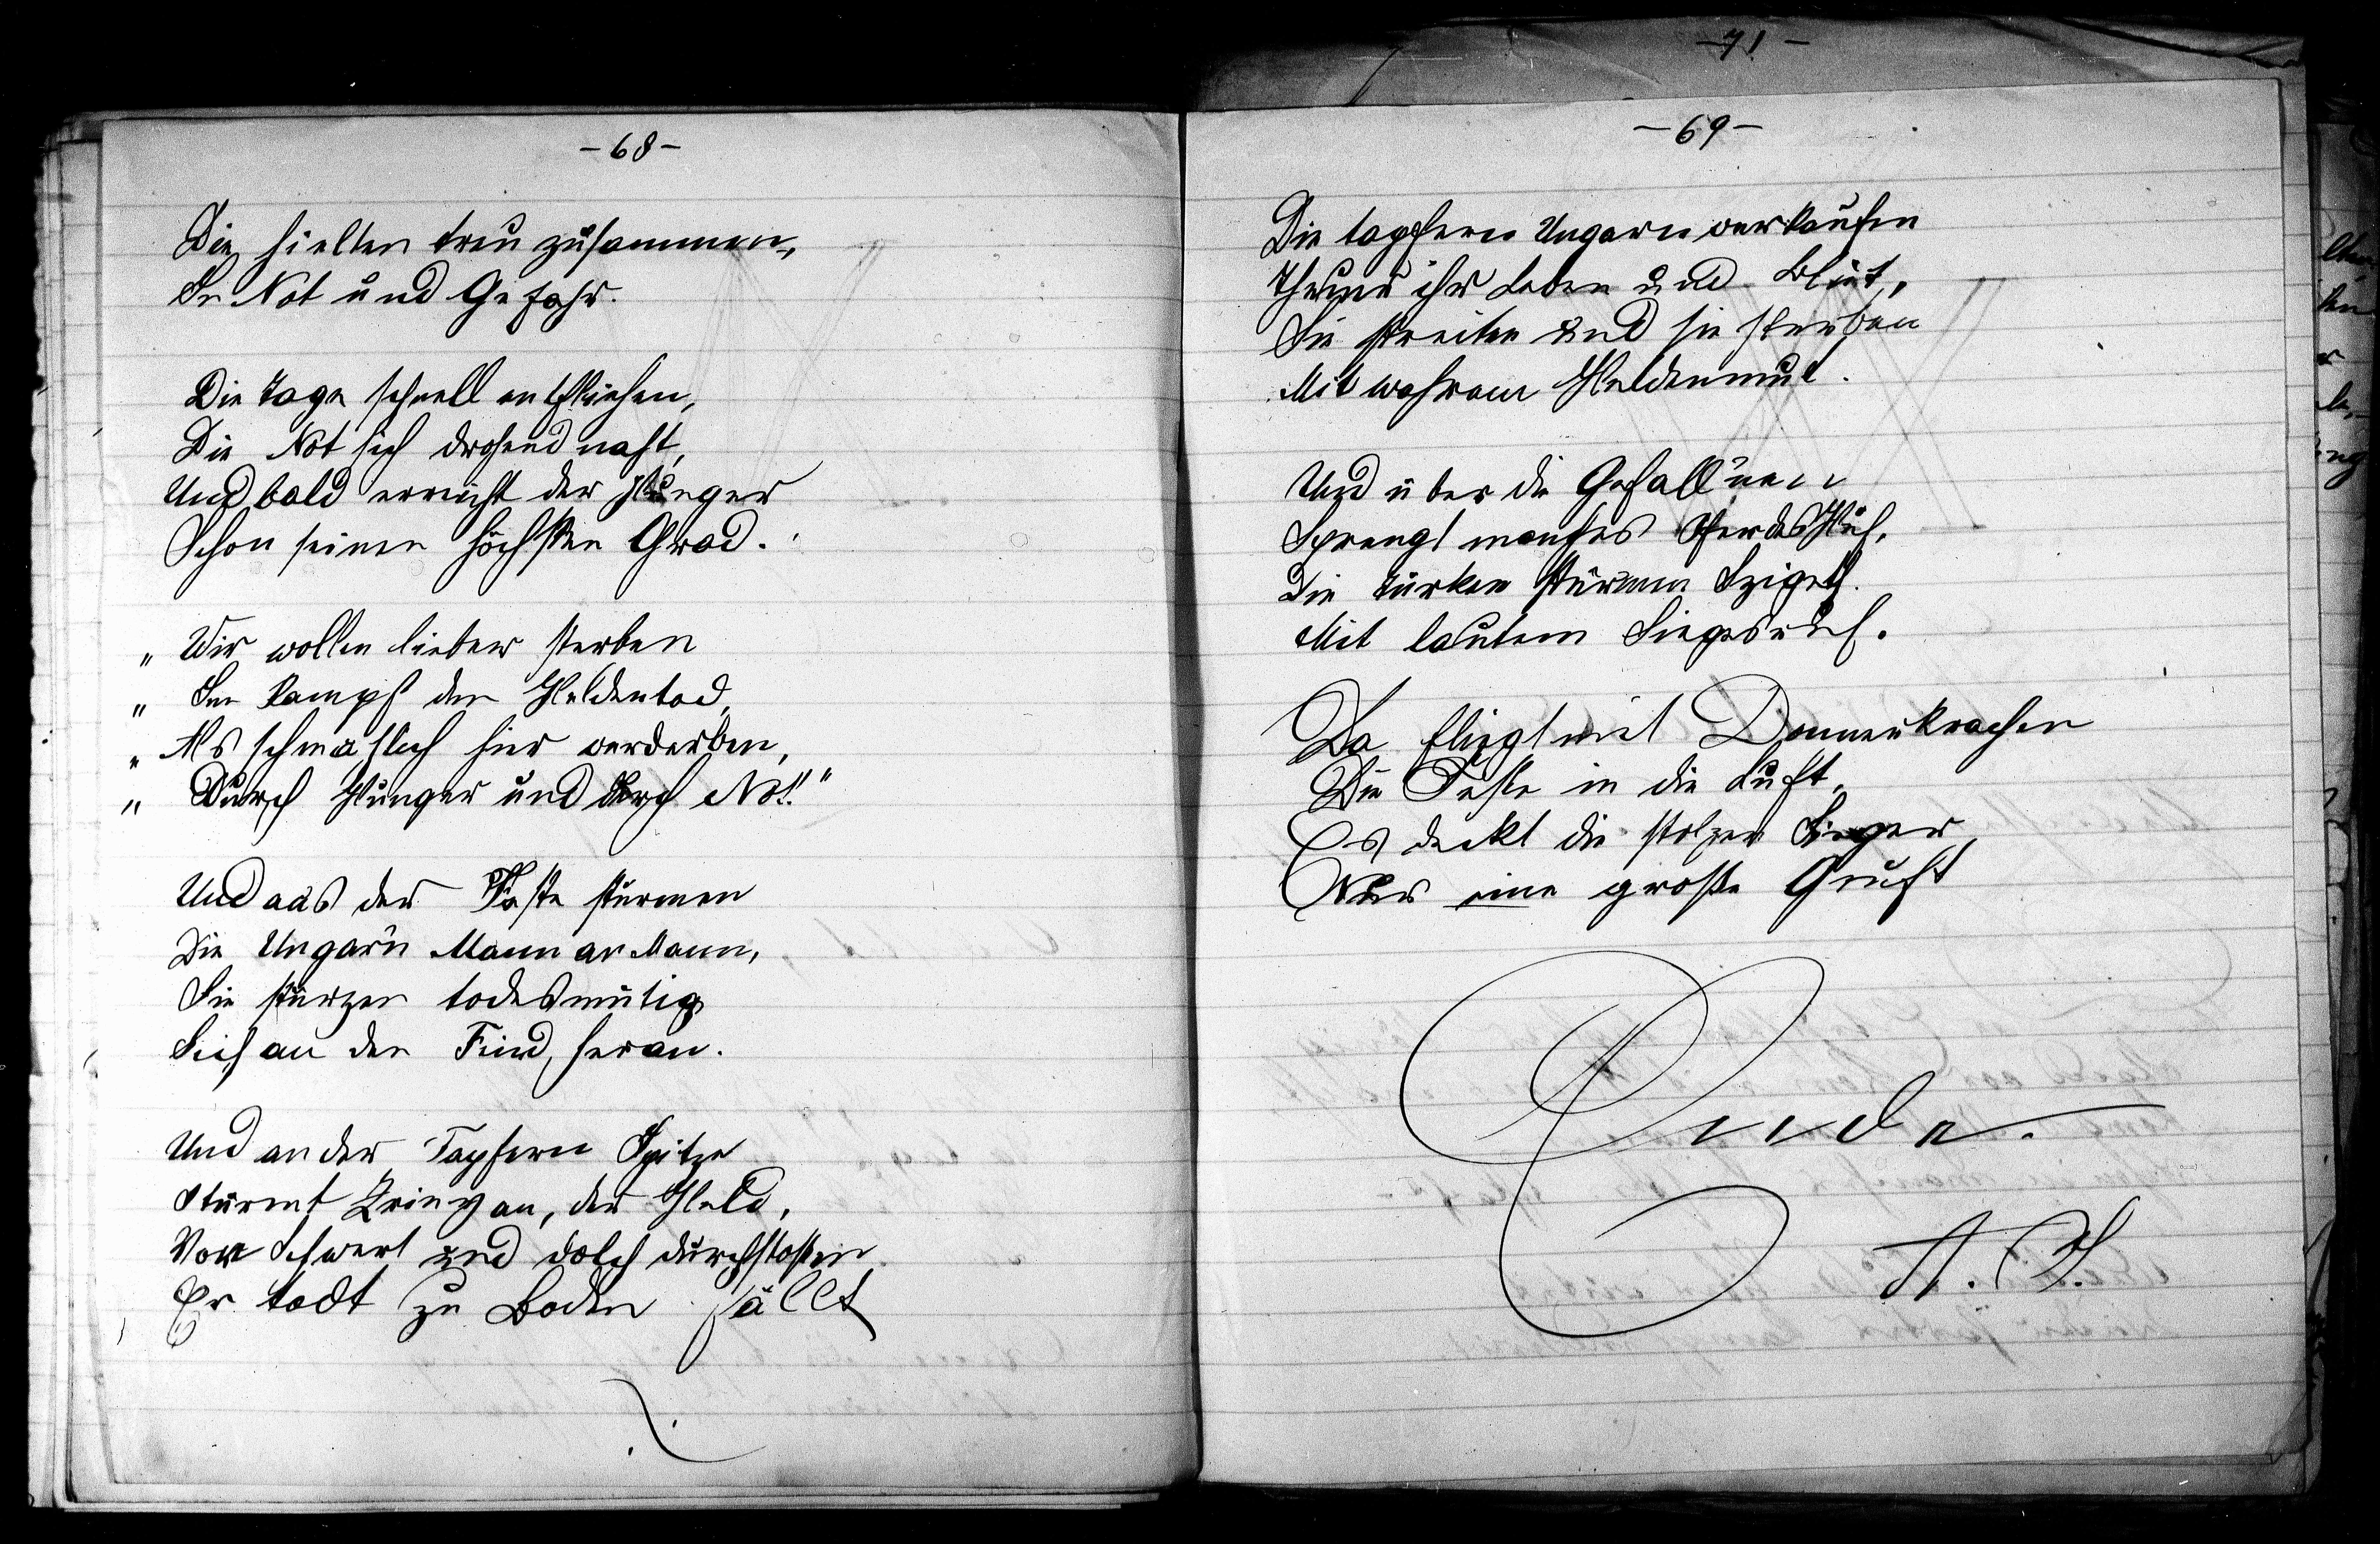 -68-
Die hielten treu zusammen,
In Not und Gefahr.
Die Tage schnell entfliehen,
Die Not sich drohend naht,
Und bald erreicht der Hunger
Schon seinen höchsten Grad.
„ Wir wollen lieber sterben
„ Im Kampf den Heldentod,
„ Als schmählich hier verderben,
„ Durch Hunger und durch Not!"
Und aus der Feste stürmen
Die Ungarn Mann an Mann,
Sie stürzen todesmutig
Sich an den Feind heran.
Und an der Tapfern Spitze
Stürmt Zriny an, der Held,
Von Schwert und Dolch durchstoßen
Er todt zu Boden fällt
-71-
-69-
Die tapfern Ungarn verkaufen
Theuer ihr Leben und Blut,
Sie streiten und sie sterben
Mit wahrem Heldenmut.
Und über die Gefall'nen
Sprengt manches Pferdes Huf,
Die Türken stürmen Szigeth.
Mit lautem Siegesruf.
Da fliegt mit Donnerkrachen
Die Feste in die Luft,
Es deckt die stolzen Sieger,
Nur eine große Gruft
Ende.
A. H.